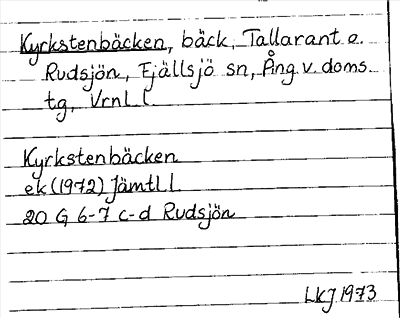 Kyrkstenbäcken, bäck, Tallarant o.
Rudsjön, Fjällsjö sn, Ång. v. doms.
tg, Vrnl l.
Kyrkstenbäcken
ek (1972) Jämtl l
20 G 6-7 c-d Rudsjön
LKJ 1973